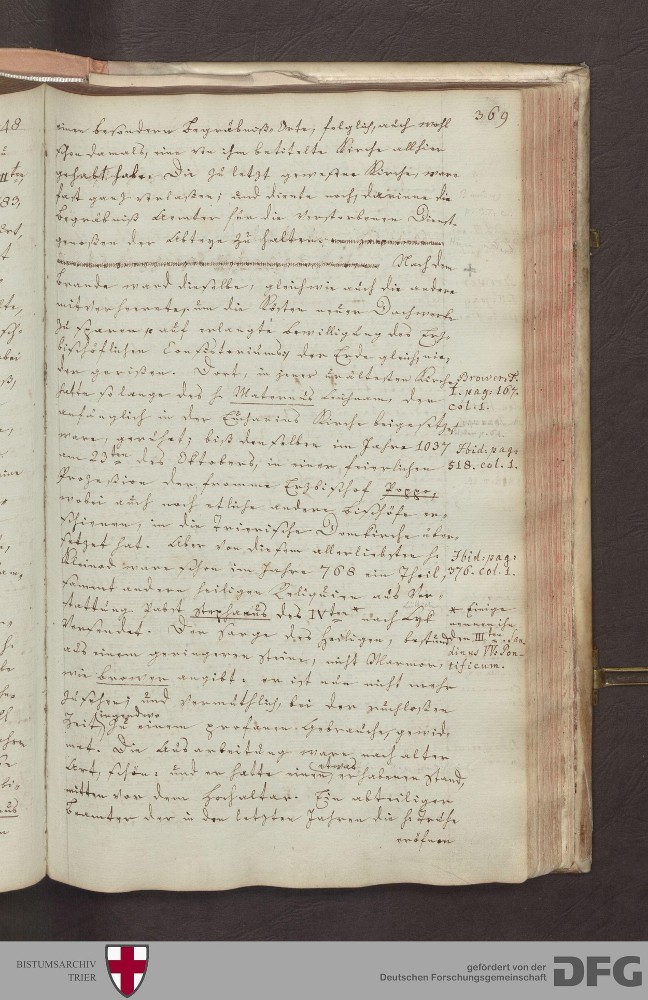 369
einen besondern Begräbniß-Orte, folglich, auch wohl
schon damals, eine von ihm betitelte Kirche allhier
gehabt habe. Die zu letzt gewesene Kirche, ware
fast ganz verlaßen; und diente noch, darinne die
Begräbniß Aemter für die verstorbenen Dienst-
genoßen der Abteye zu halten.
Nach dem +
Brande ward dieselbe, gleichwie auch die andere
mitverheerete, um die Kosten neuer Dachwerke
zu sparen auf erlangte Bewilligung des Erz-
bischöflichen Consistoriums, der Erde gleich, nie-
der gerißen. Dort, in jener uraltesten Kirche
hatte so lange des h. Maternus Leichnam, der
anfänglich in der Eucharius Kirche beigesetzet
ware, geruhet; biß denselben im Jahre 1037
am 23ten des Oktobers, in einer feierlichen
Prozession der fromme Erzbischof Poppo,
wobei auch noch etliche andere Bischöfe er-
schienen, in die Trierische Domkirche über-
setzet hat. Aber von diesem allerliebsten h.
Kleinod ware schon im Jahre 768 ein Theil,
sammt andern heiligen Reliquien aus Ver-
stattung Pabst Stephanus des IVten * nach
versendet. Der Sarge des Heiligen, bestand
aus einem geringeren Steine, nicht Marmor,
wie Brower angibt: er ist nun nicht mehr
zusehen; und vermuthlich, bei der ruchlosen
Zeit irgendwo zu einem profanen Gebrauche, gewid-
met. Die Ausarbeitung ware nach alter
Art, schön: und er hatte einen etwas erhabenen Stand,
mitten vor dem Hochaltar. Ein abteiliger
Beamter der in den letzten Jahren die h. Truhe
eröfnen
Brower. T.
I. pag: 167.
col: 1.
Ibid: pag:
518. col. 1.
Ibid: pag:
376. col: 1.
* Einige
nennen ihn
den IIIten
Pon-
tificum.
BISTUMSARCHIV
TRIER
gefördert von der
Deutschen Forschungsgemeinschaft
DFG